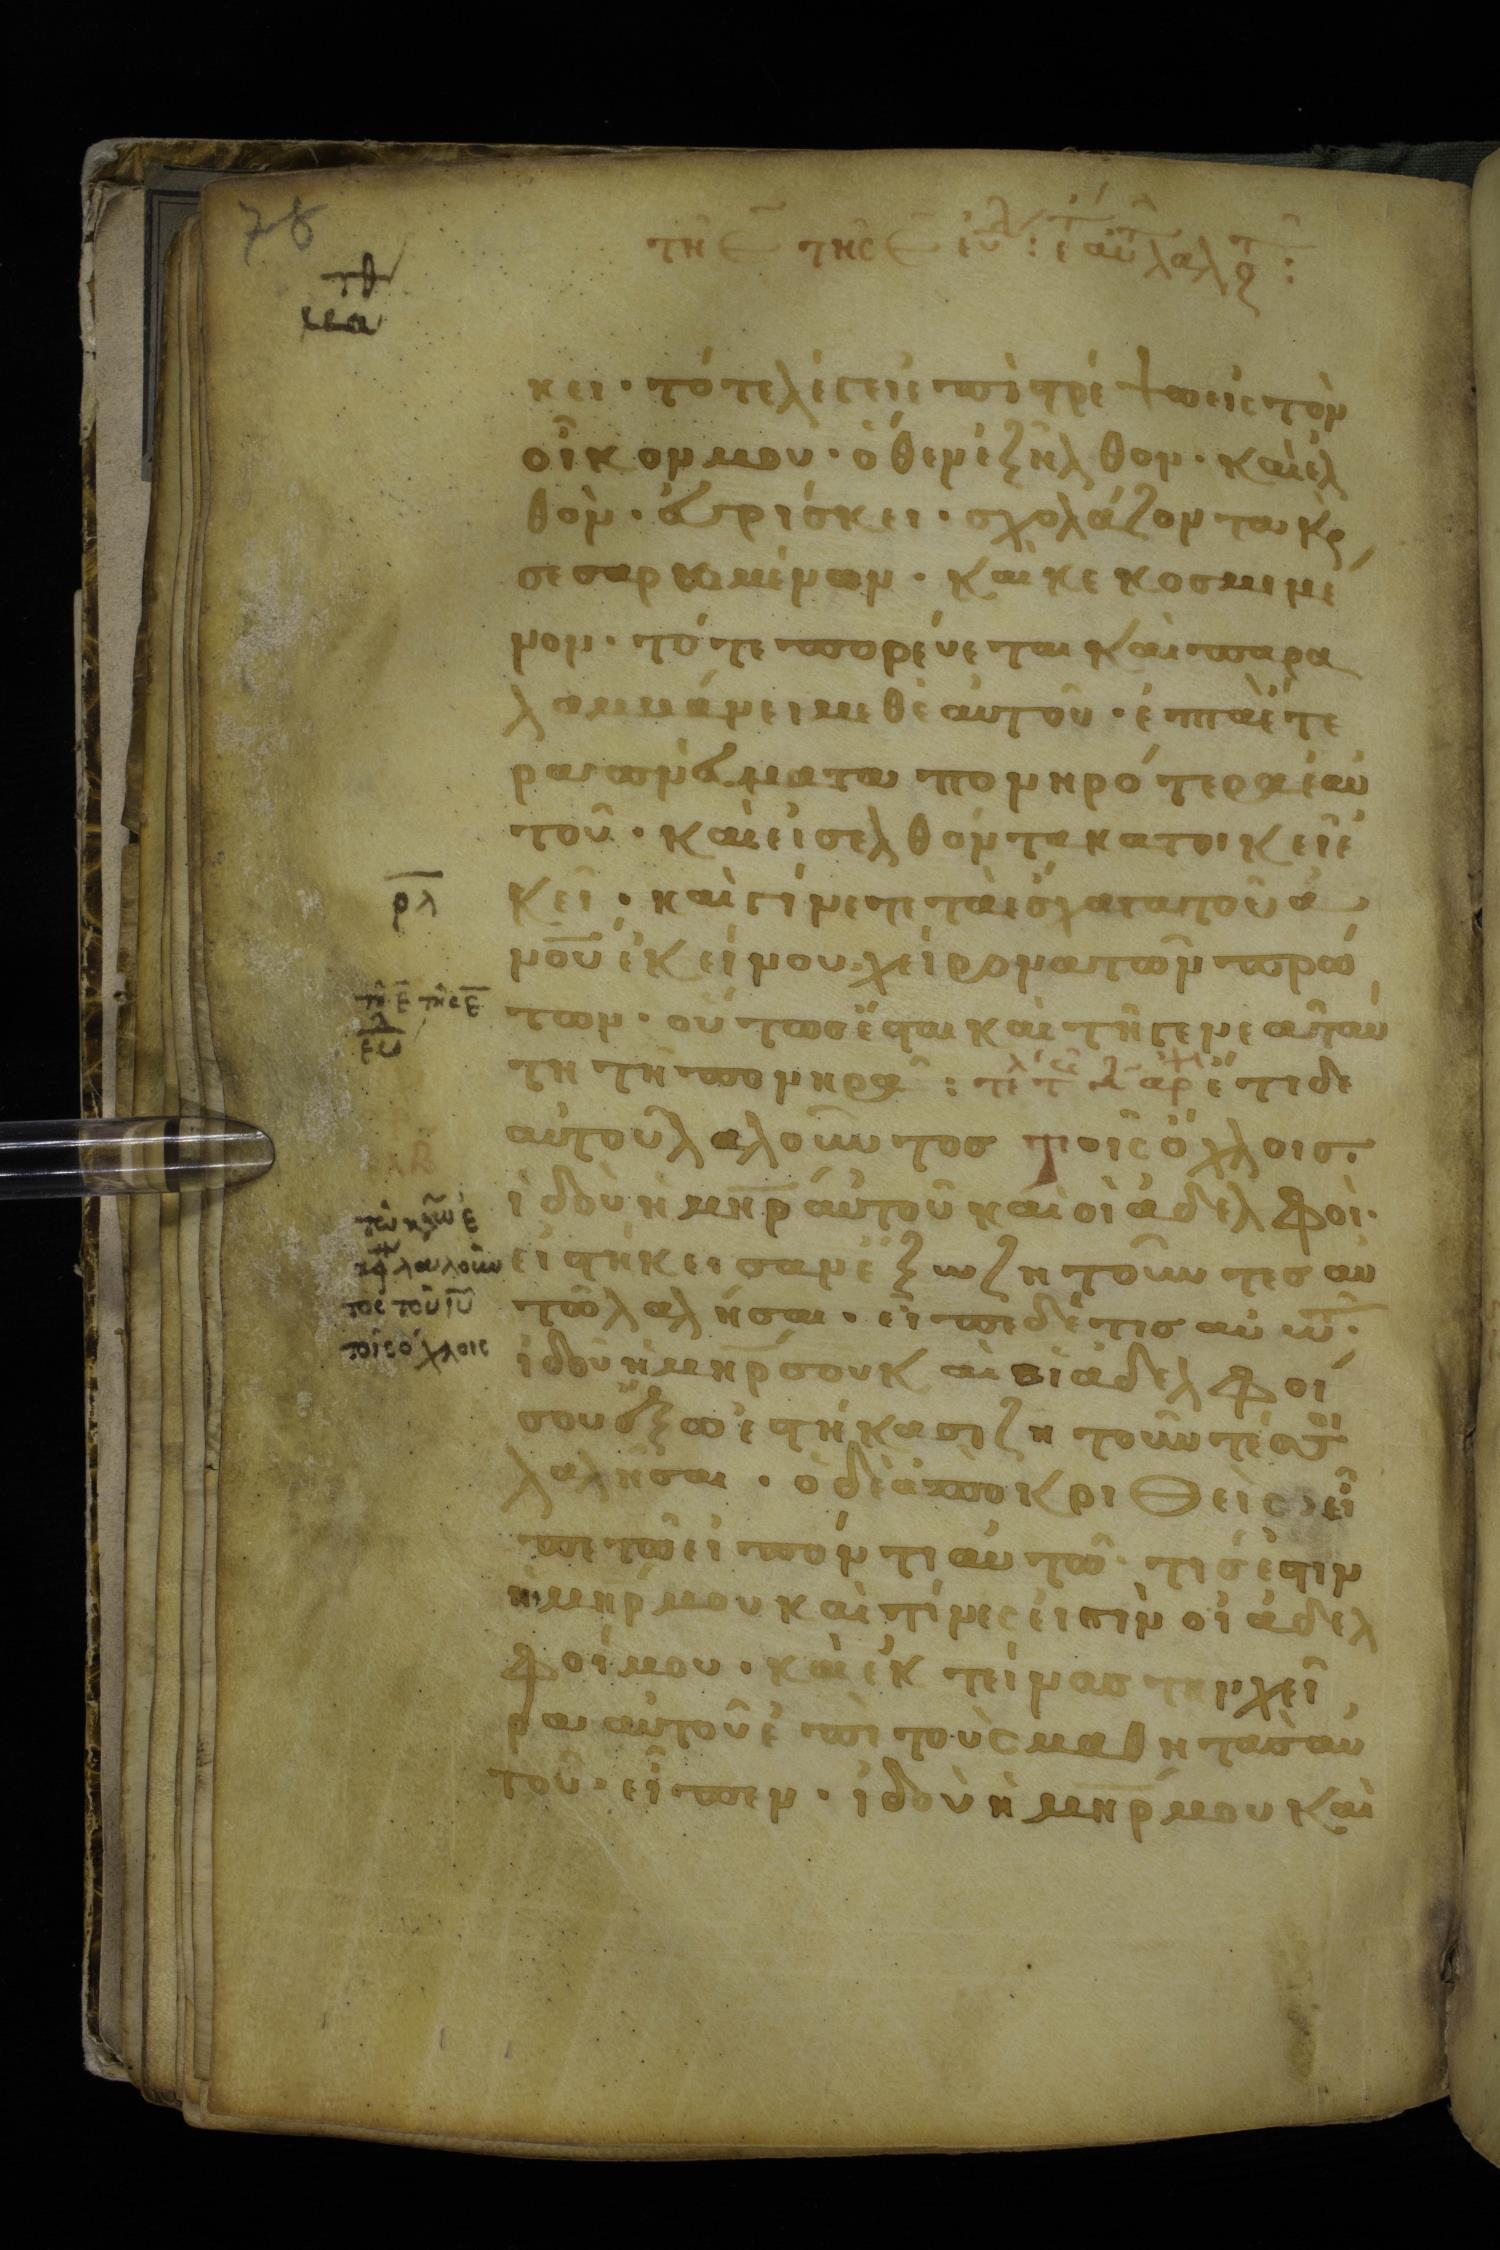 τῇ ε̄ τῆς ε̄
κει · τότε λέγει ἐπιστρέψω εἰς τὸν
οἶκον μου · ὅθεν ἐξῆλθον · καὶ ἐλ
θὸν · εὑρίσκει · σχολάζοντα κ
σεσαρωμένων · καὶ κεκοσμιμέ
νον · τότε πορεύεται καὶ παρα
λαμβάνει μεθ ἑαυτοῦ · ἑπτὰ ἕτε
ρα πνεύματα πονηρότερα ἑαυ
τοῦ · καὶ εἰσελθόντα κατοικεῖ ἐ
κεῖ · καὶ γίνετε τὰ ἔσχατα τοῦ α
νου ἐκείνου χείρονα τῶν πρώ
των · οὕτως ἔσται καὶ τῇ γενεᾷ ταύ
τη τῇ πονηρᾷ : ἔτι δε
αὐτοῦ λαλοῦντος τοῖς ὄχλοις ·
ἰδοὺ ἡ μηρ αὐτοῦ καὶ οἱ ἀδελφοὶ ·
εἱστήκεισαν ἔξω ζητοῦντες αὐ
τῶ λαλῆσαι · εἶπε δέ τις αὐτῶ ·
ἰδοὺ ἡ μηρ σου καὶ οἱ ἀδελφοί
σου ἔξω ἑστήκασι ζητοῦντές σοι
λαλῆσαι · ὁ δὲ ἀποκριθεὶς εἶ
πε τῶ εἰπόντι αὐτῶ · τίς ἐστιν
ἡ μηρ μου καὶ τίνες εἰσὶν οἱ ἀδελ
φοί μου · καὶ ἐκτείνας την χεῖ
ρα αὐτοῦ ἐπὶ τοὺς μαθητὰς αὐ
τοῦ · εἶπεν · ἰδοὺ ἡ μηρ μου καὶ
ρλ
τῇ ε̄ τῆς ε̄
λαλοῦν
τος τοῦ ιυ
τοῖς ὄχλοις